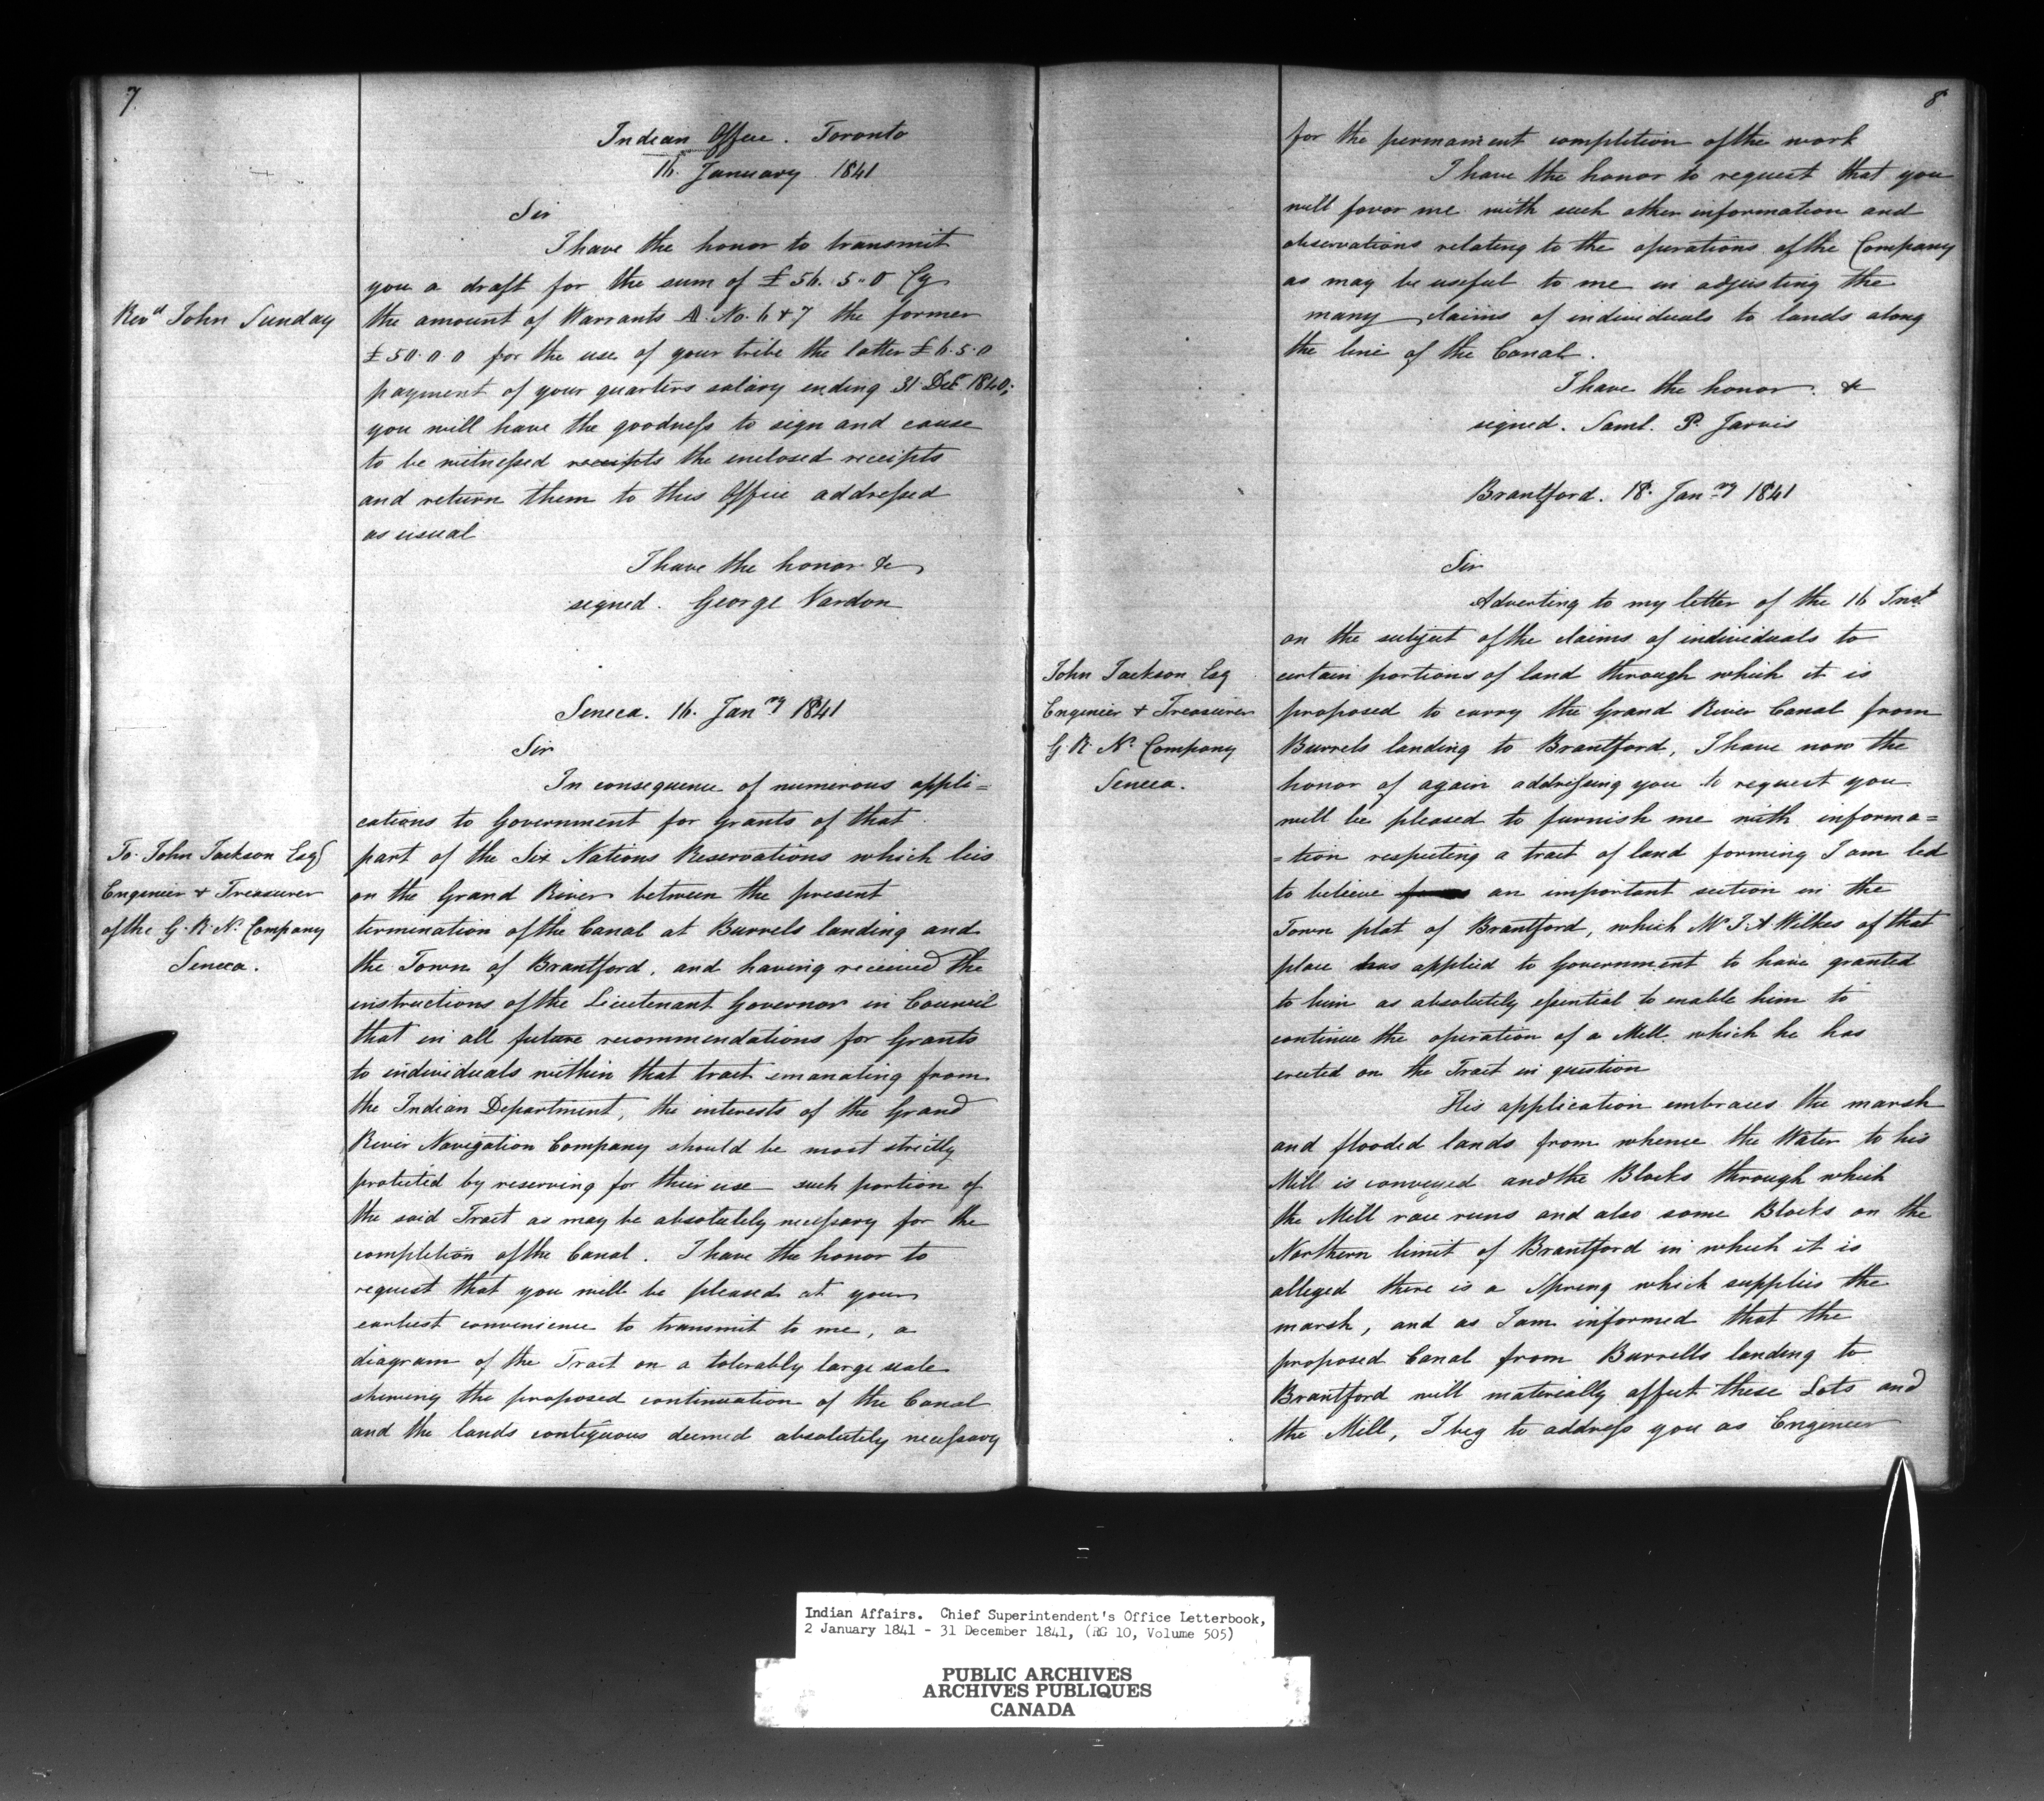 7
Indian Office. Toronto
16. January. 1841
Sir
I have the honor to transmit
you a draft for the sum of £56. 5.. 0 Cy
Revd John Sunday
the amount of Warrants A. No. 6 & 7 the former
£50. 0. 0 for the use of your tribe the latter £6. 5. 0
payment of your quarters salary ending 31 Decr 1840;
you will have the goodness to sign and cause
to be witnessed receipts the inclosed receipts
and return them to this Office addressed
as usual
I have the honor &c
signed. George Vardon
Seneca. 16. Jany 1841
Sir
In consequence of numerous appli=
cations to Government for Grants of that
To John Jackson Esqr
Engenier & Treasurer
of the G. R. N. Company
Seneca.
part of the Six Nations Reservations which lies
on the Grand River between the present
termination of the Canal at Burrels landing and
the Town of Brantford, and having received the
instructions of the Lieutenant Governor in Council
that in all future recommendations for Grants
to individuals within that tract emanating from
the Indian Department, the interests of the Grand
River Navigation Company should be most strictly
protected by reserving for their use such portion of
the said Tract as may be absolutely necessary for the
completion of the Canal. I have the honor to
request that you will be pleased at your
earliest convenience to transmit to me, a
diagram of the Tract on a tolerably large scale
shewing the proposed continuation of the Canal
and the lands contiguous deemed absolutely necessary
8
for the permanent completion of the work
I have the honor to request that you
will favor me with such other information and
observations relating to the operations of the Company
as may be useful to me in adjusting the
many claims of individuals to lands along
the line of the Canal.
I have the honor. &c
signed. Saml. P. Jarvis
Brantford. 18. Jany 1841
Sir
Adverting to my letter of the 16 Inst
on the subject of the claims of individuals to
John Jackson Esq
Engenier & Treasurer
G. R. N. Company
Seneca.
certain portions of land through which it is
proposed to carry the Grand River Canal from
Burrels landing to Brantford, I have now the
honor of again addressing you to request you
will be pleased to furnish me with informa=
=tion respecting a tract of land forming I am led
to believe an important section in the
Town plat of Brantford, which Mr J. A Wilkes of that
place has applied to Government to have granted
to him as absolutely essential to enable him to
continue the operation of a Mill which he has
erected on the Tract in question
His application embraces the marsh
and flooded lands from whence the Water to his
Mill is conveyed and the Blocks through which
the Mill race runs and also some Blocks on the
Northern limit of Brantford in which it is
alleged there is a Spring which supplies the
marsh, and as I am informed that the
proposed Canal from Burrells landing to
Brantford will materially affect these Lots and
the Mill, I beg to address you as Engeneer
Indian Affairs. Chief Superintendent's Office Letterbook,
2 January 1841 - 31 December 1841, (RG 10, Volume 505)
PUBLIC ARCHIVES
ARCHIVES PUBLIQUES
CANADA